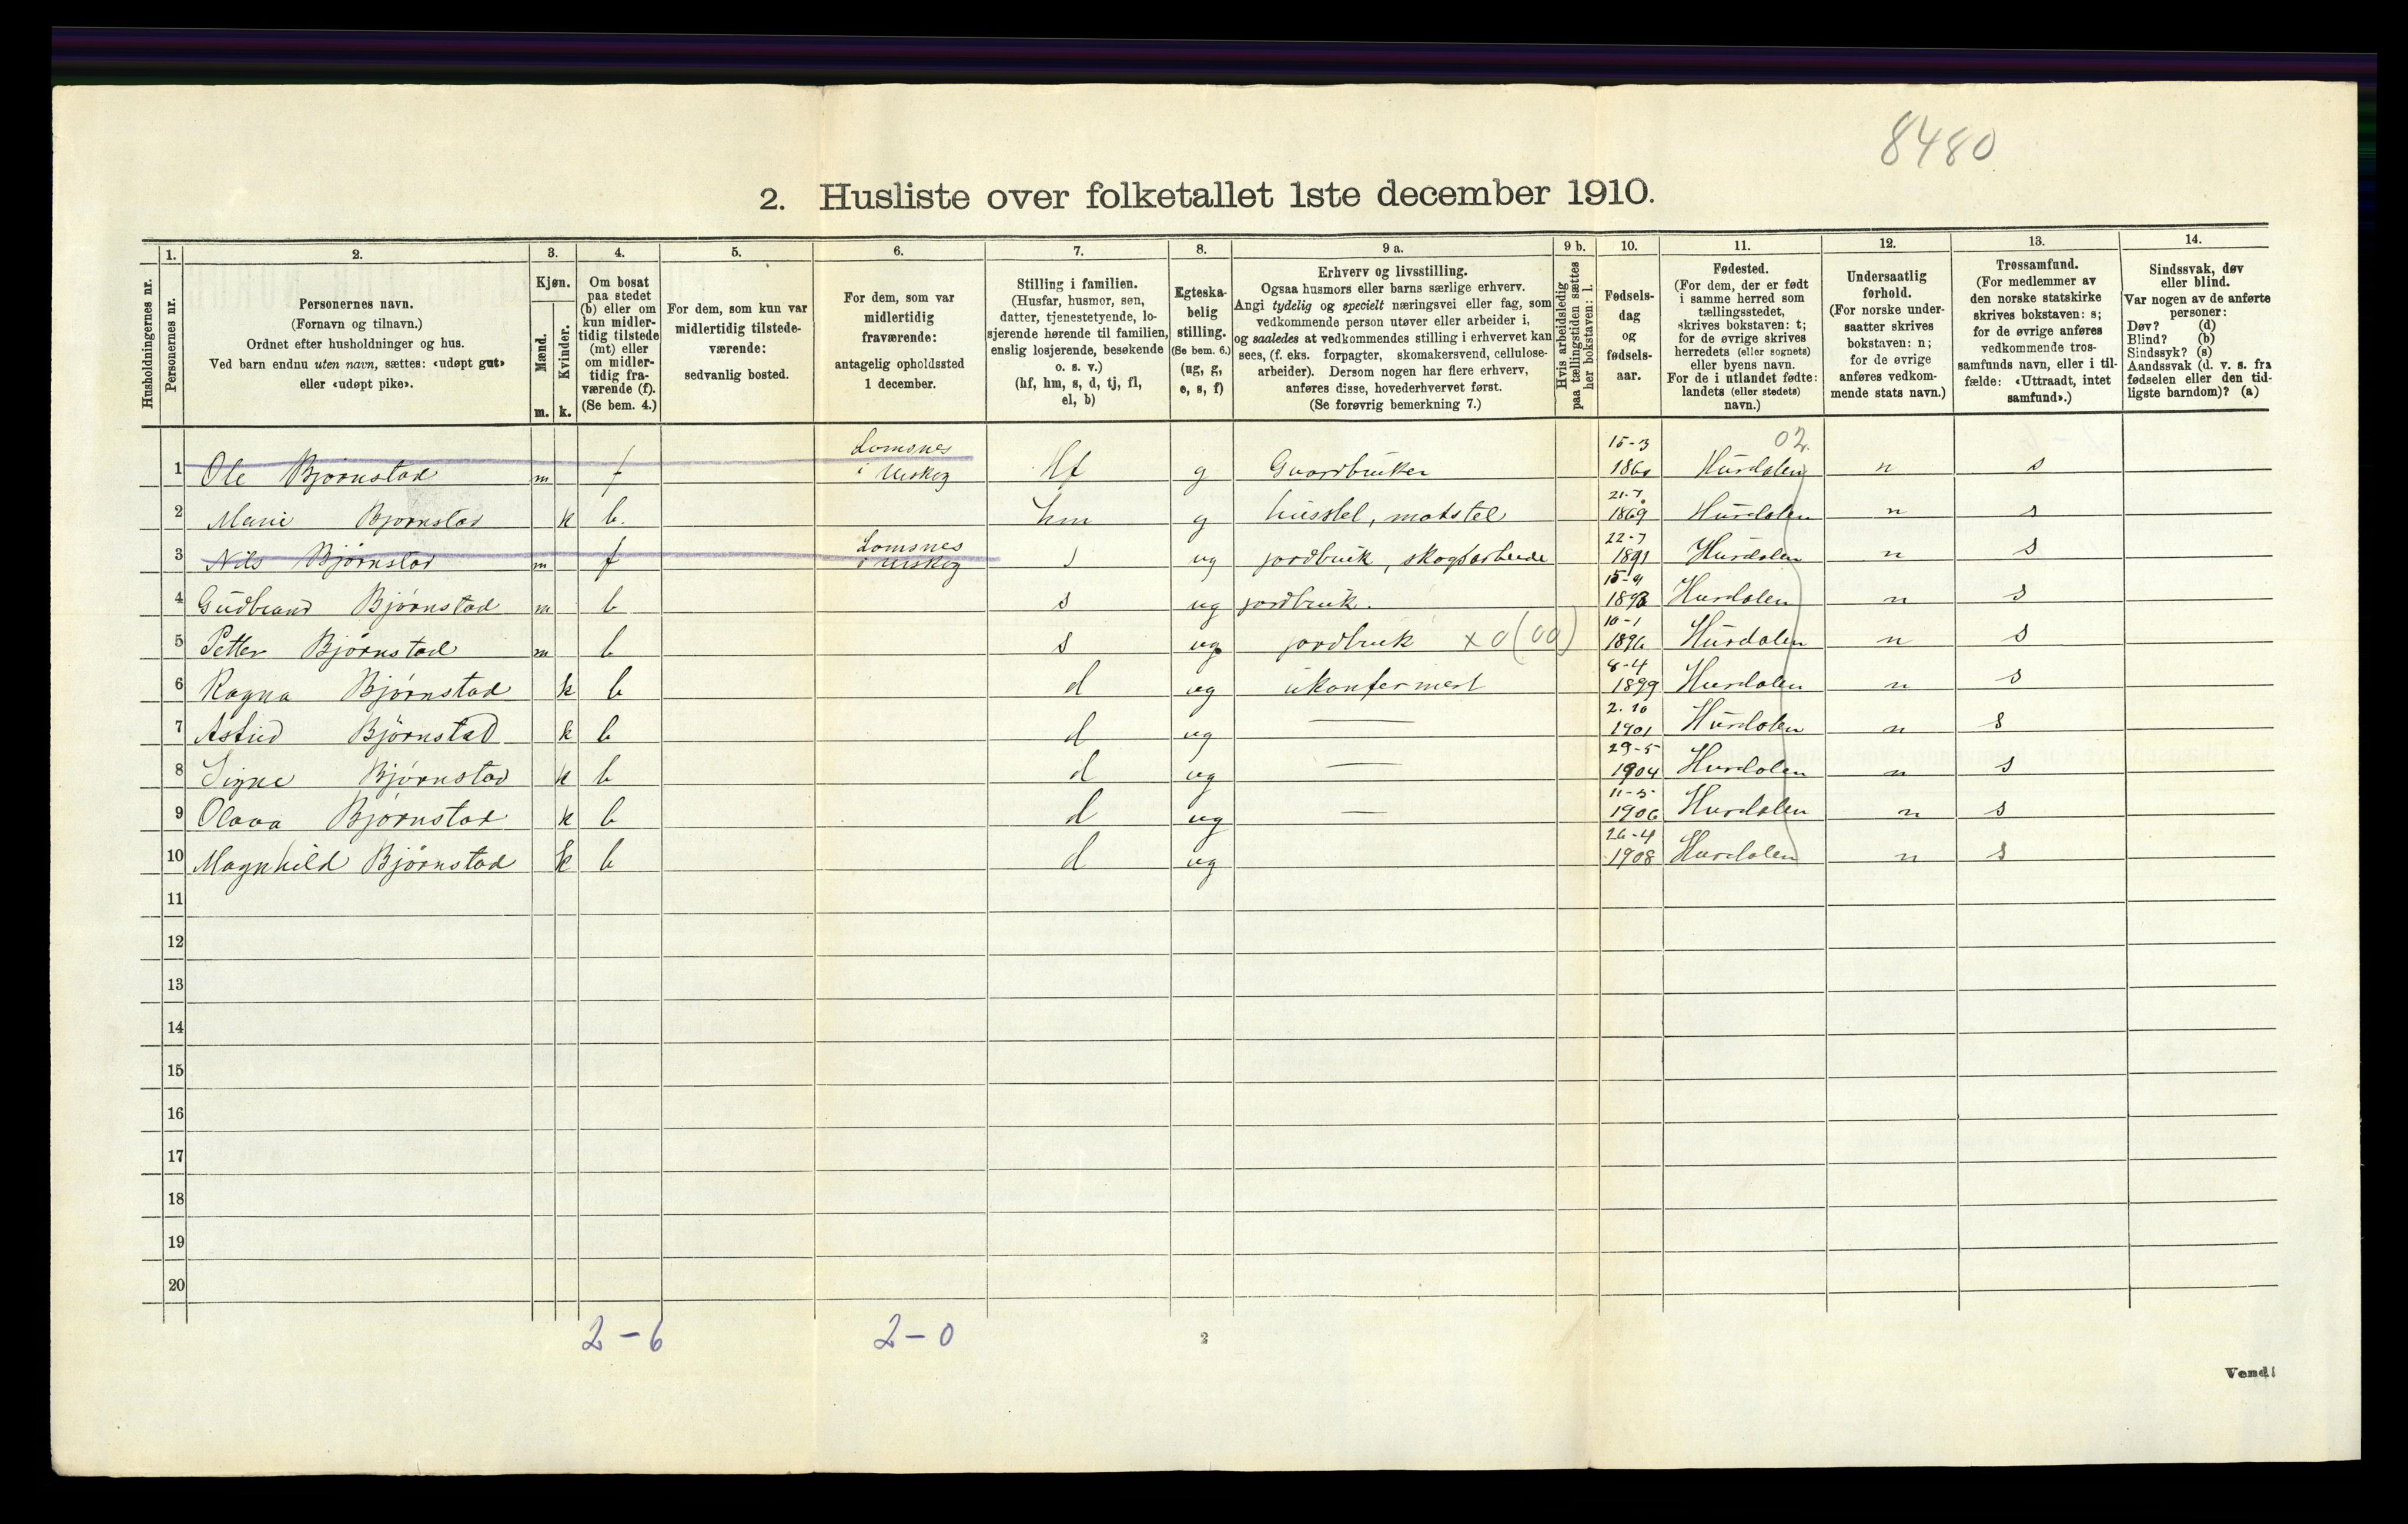 8480
2. Husliste over folketallet 1ste december 1910.
1. 2. 3. 4. 5. 6. 7. 8. 9 a. 9 b. 10. 11. 12. 13. 14.
Husholdningernes nr.
Personernes nr.
Personernes navn.
(Fornavn og tilnavn.)
Ordnet efter husholdninger og hus.
Ved barn endnu uten navn, sættes: «udøpt gut»
eller «udøpt pike».
Kjøn.
Mænd.
Kvinder.
m. k.
Om bosat
paa stedet
(b) eller om
kun midler-
tidig tilstede
(mt) eller
om midler-
tidig fra-
værende (f).
(Se bem. 4.)
For dem, som kun var
midlertidig tilstede-
værende:
sedvanlig bosted.
For dem, som var
midlertidig
fraværende:
antagelig opholdssted
1 december.
Stilling i familien.
(Husfar, husmor, søn,
datter, tjenestetyende, lo-
sjerende hørende til familien,
enslig losjerende, besøkende
o. s. v.)
(hf, hm, s, d, tj, fl,
el, b)
Egteska-
belig
stilling.
(Se bem. 6.)
(ug, g,
e, s, f)
Erhverv og livsstilling.
Ogsaa husmors eller barns særlige erhverv.
Angi tydelig og specielt næringsvei eller fag, som
vedkommende person utøver eller arbeider i,
og saaledes at vedkommendes stilling i erhvervet kan
sees, (f. eks. forpagter, skomakersvend, cellulose-
arbeider). Dersom nogen har flere erhverv,
anføres disse, hovederhvervet først.
(Se forøvrig bemerkning 7.)
Hvis arbeidsledig
paa tællingstiden sættes
her bokstaven: l.
Fødsels-
dag
og
fødsels-
aar.
Fødested.
(For dem, der er født
i samme herred som
tællingsstedet,
skrives bokstaven: t;
for de øvrige skrives
herredets (eller sognets)
eller byens navn.
For de i utlandet fødte:
landets (eller stedets)
navn.)
Undersaatlig
forhold.
(For norske under-
saatter skrives
bokstaven: n;
for de øvrige
anføres vedkom-
mende stats navn.)
Trossamfund.
(For medlemmer av
den norske statskirke
skrives bokstaven: s;
for de øvrige anføres
vedkommende tros-
samfunds navn, eller i til-
fælde: «Uttraadt, intet
samfund».)
Sindssvak, døv
eller blind.
Var nogen av de anførte
personer:
Døv? (d)
Blind? (b)
Sindssyk? (s)
Aandssvak (d. v. s. fra
fødselen eller den tid-
ligste barndom)? (a)
02.
1 Ole Bjørnstad m f Lomsnes i Urskog hf g Gaardbruker 15-3 Hurdalen n s
2 Marie Bjørnstad k b. hm g husstel, matstel 21-7 1869 Hurdalen n s
3 Nils Bjørnstad m f Lomsnes i Urskog s ug jordbruk, skogsarbeide 22-7 1891 Hurdalen n s
4 Gudbrand Bjørnstad m b s ug jordbruk. 15-9 1893 Hurdalen n s
5 Petter Bjørnstad m b s ug jordbruk x 0 (00) 10-1 1896 Hurdalen n s
6 Ragna Bjørnstad k b d ug ukonfermert 8-4 1899 Hurdalen n s
7 Astrid Bjørnstad k b d ug — 2.10 1901 Hurdalen n s
8 Signe Bjørnstad k b d ug — 29-5 1904 Hurdalen n s
9 Olava Bjørnstad k b d ug — 11-5 1906 Hurdalen n s
10 Magnhild Bjørnstad k b d ug 26-4 1908 Hurdalen n s
11
12
13
14
15
16
17
18
19
20
2-6 2-0
2
Vend!